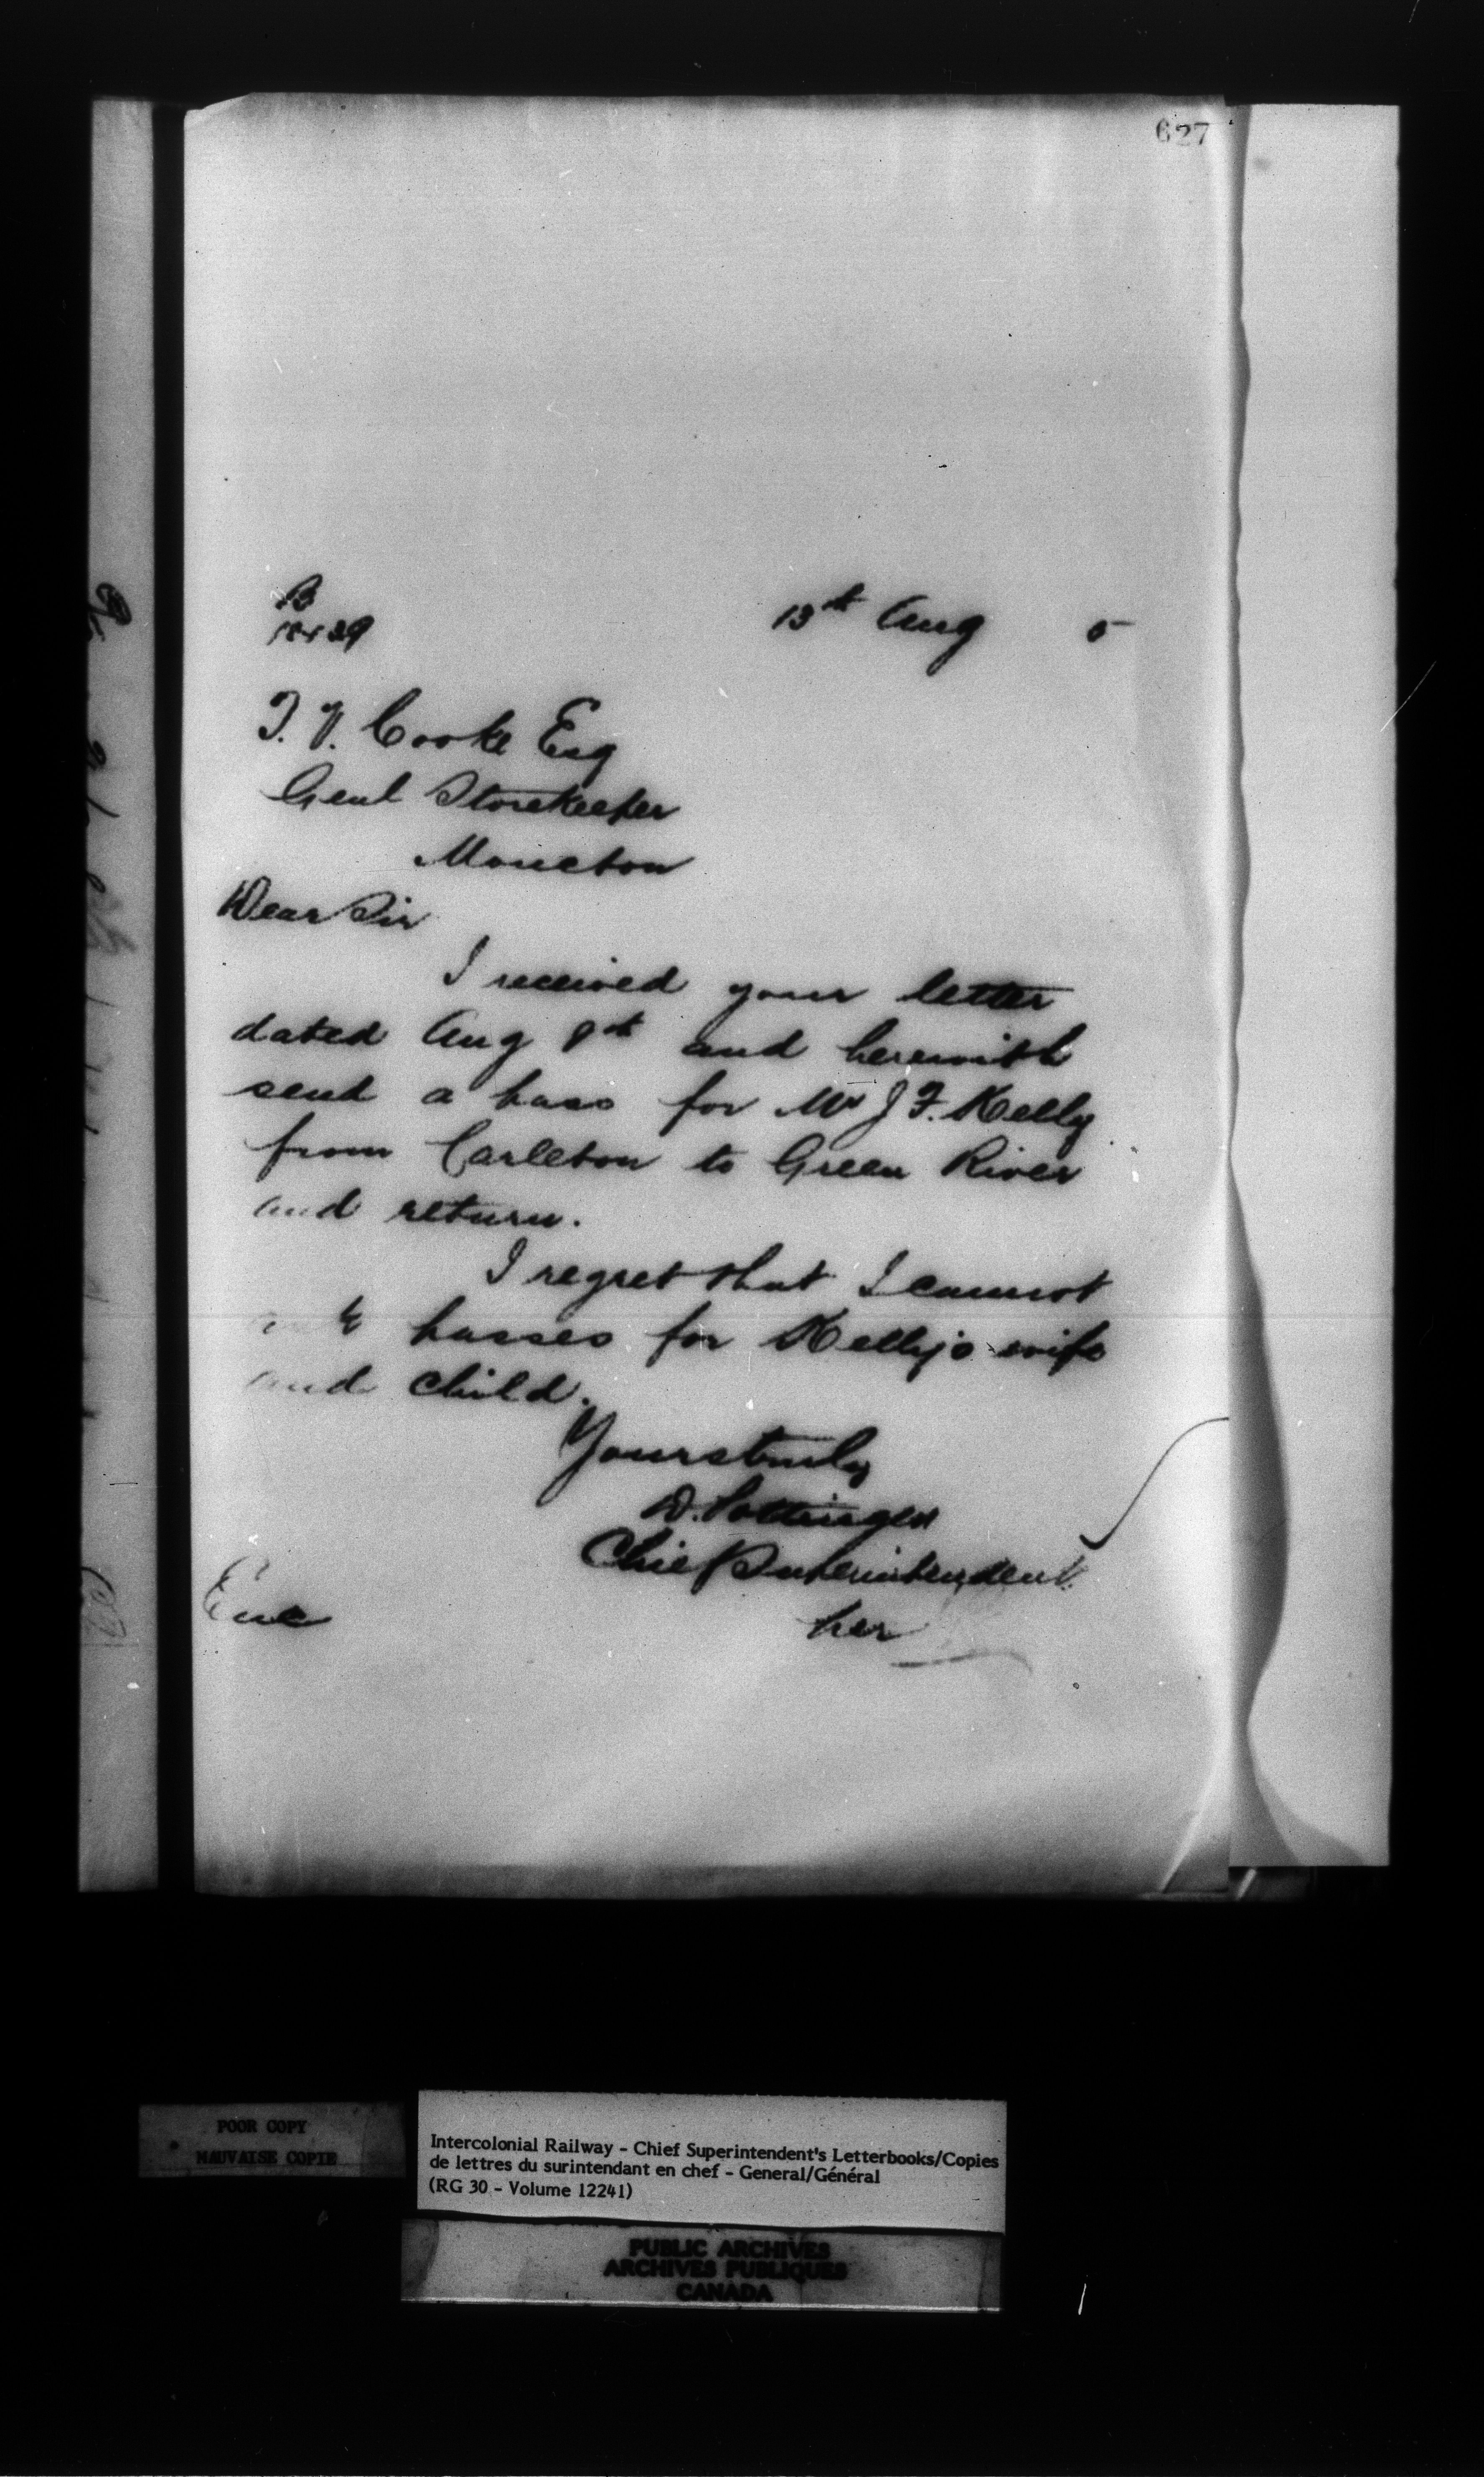 627
13th Aug 5
T. V. Cooke Esq
Genl Storekeeper
Moncton
Dear Sir
I received your letter
dated Aug 8th and herewith
send a pass for Mr J F. Kelly
from Carleton to Green River
and return.
I regret that I cannot
ask passes for Kelly's wife
and child.
Yours truly
D. Pottinger
Chief Superintendent
per
Enc
POOR COPY
MAUVAISE COPIE
Intercolonial Railway - Chief Superintendent's Letterbooks/Copies
de lettres du surintendant en chef - General/Général
(RG 30 - Volume 12241)
PUBLIC ARCHIVES
ARCHIVES PUBLIQUES
CANADA